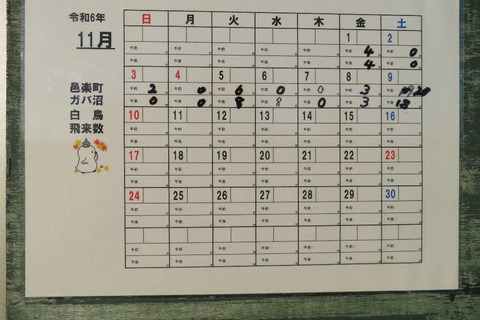 令和6年
11月
邑楽町
ガバ沼
白鳥
飛来数
日 月 火 水 木 金 土
1 2
午前 午前 午前 午前 午前 午前 4 午前 0
午後 午後 午後 午後 午後 午後 4 午後 0
3 4 5 6 7 8 9
午前 2 午前 0 午前 6 午前 0 午前 0 午前 3 午前 20
午後 0 午後 0 午後 8 午後 8 午後 0 午後 3 午後 18
10 11 12 13 14 15 16
午前 午前 午前 午前 午前 午前 午前
午後 午後 午後 午後 午後 午後 午後
17 18 19 20 21 22 23
午前 午前 午前 午前 午前 午前 午前
午後 午後 午後 午後 午後 午後 午後
24 25 26 27 28 29 30
午前 午前 午前 午前 午前 午前 午前
午後 午後 午後 午後 午後 午後 午後
午前 午前 午前 午前 午前 午前 午前
午後 午後 午後 午後 午後 午後 午後